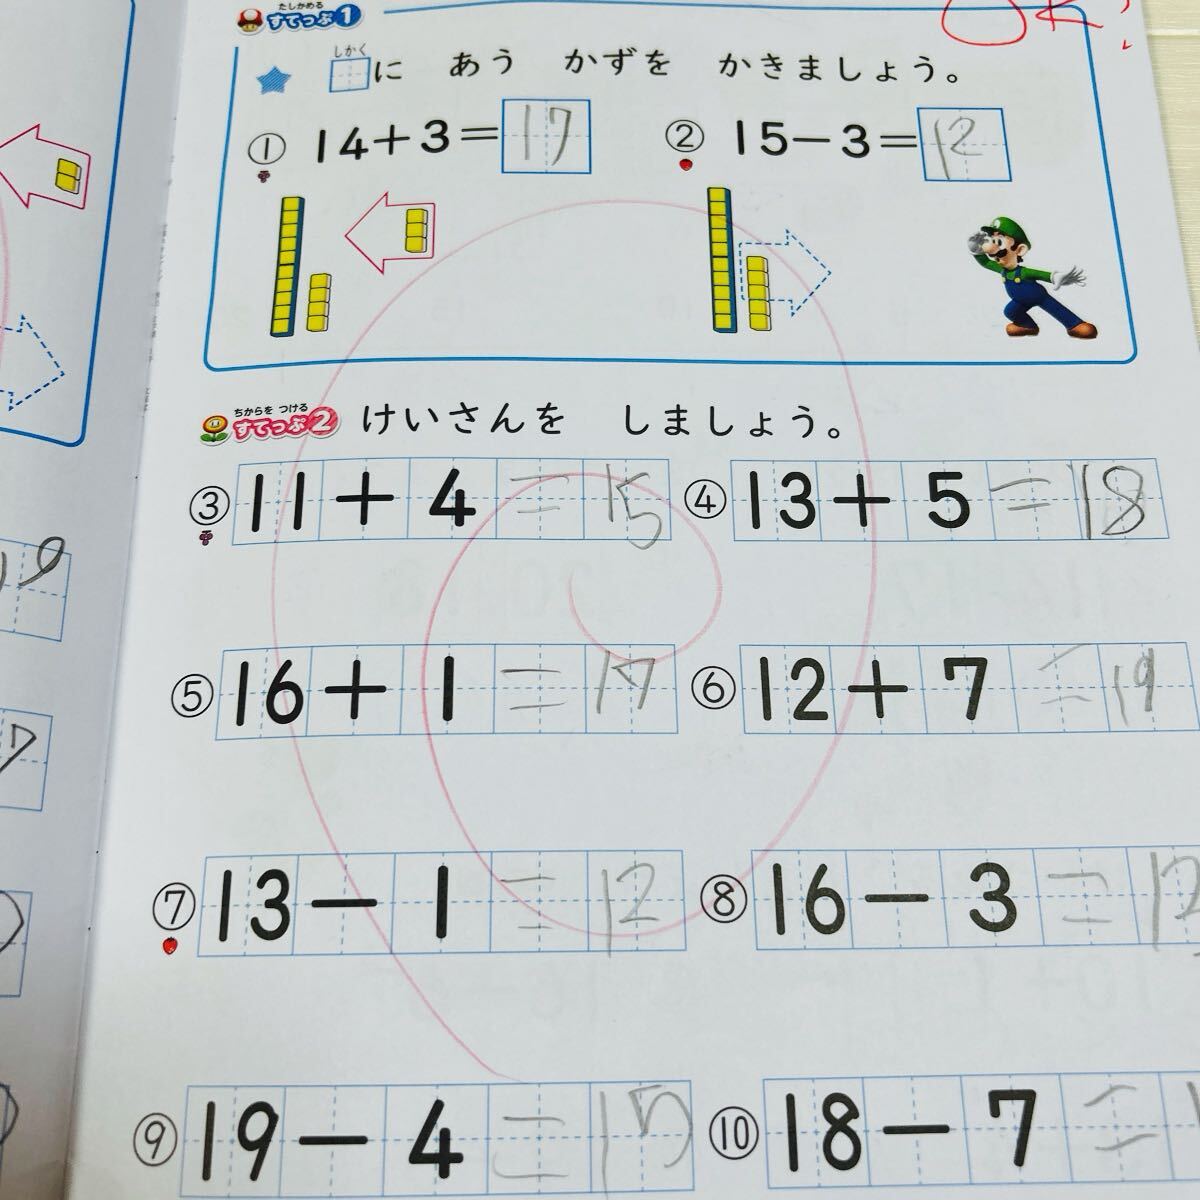 たしかめる
すてっぷ1
OK!
しかく
□に あう かずを かきましょう。
① 14+3=17 ② 15-3=12
ちからを つける
すてっぷ2 けいさんを しましょう。
③ 11+4=15 ④ 13+5=18
⑤ 16+1=17 ⑥ 12+7=19
⑦ 13-1=12 ⑧ 16-3=
⑨ 19-4=15 ⑩ 18-7=